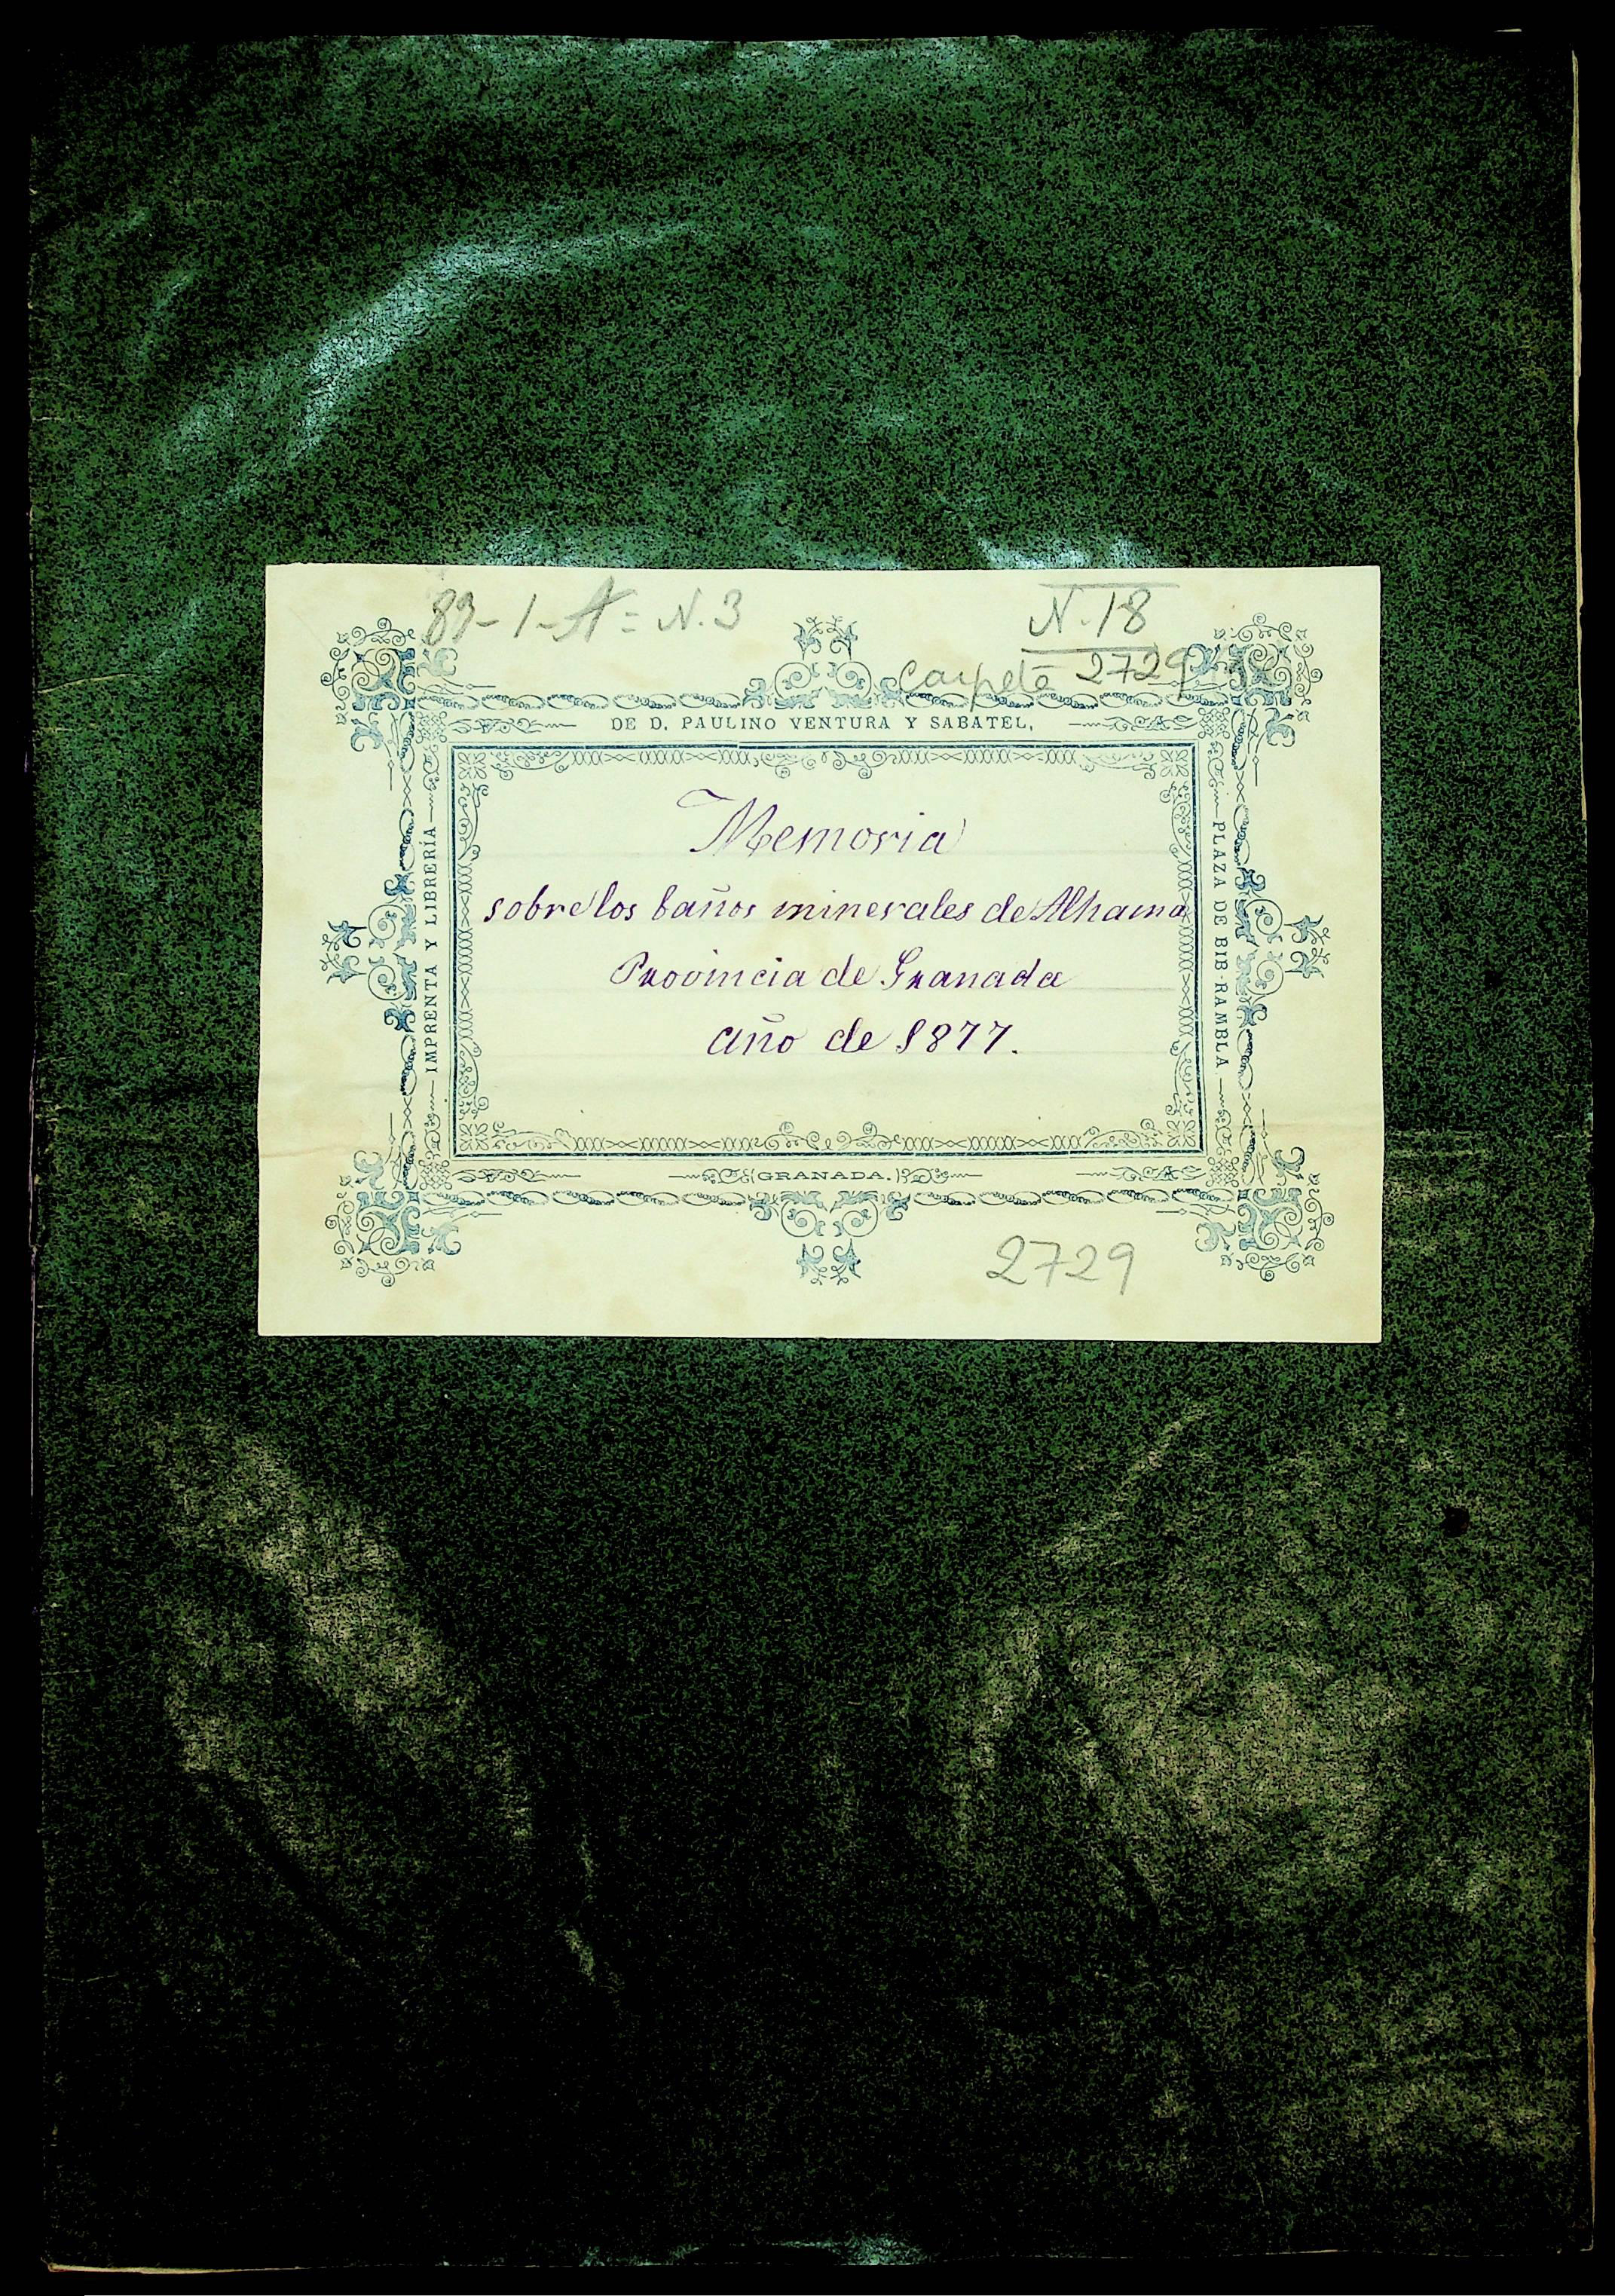 89-1-A= N.3
N.18
Carpeta 2729
DE D. PAULINO VENTURA Y SABATEL,
IMPRENTA Y LIBRERÍA
PLAZA DE BIB-RAMBLA
Memoria
sobre los baños minerales de Alhama
Provincia de Granada
año de 1877.
GRANADA.
2729